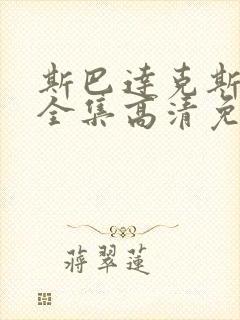 斯巴达克斯
全集高清免
蒋翠莲